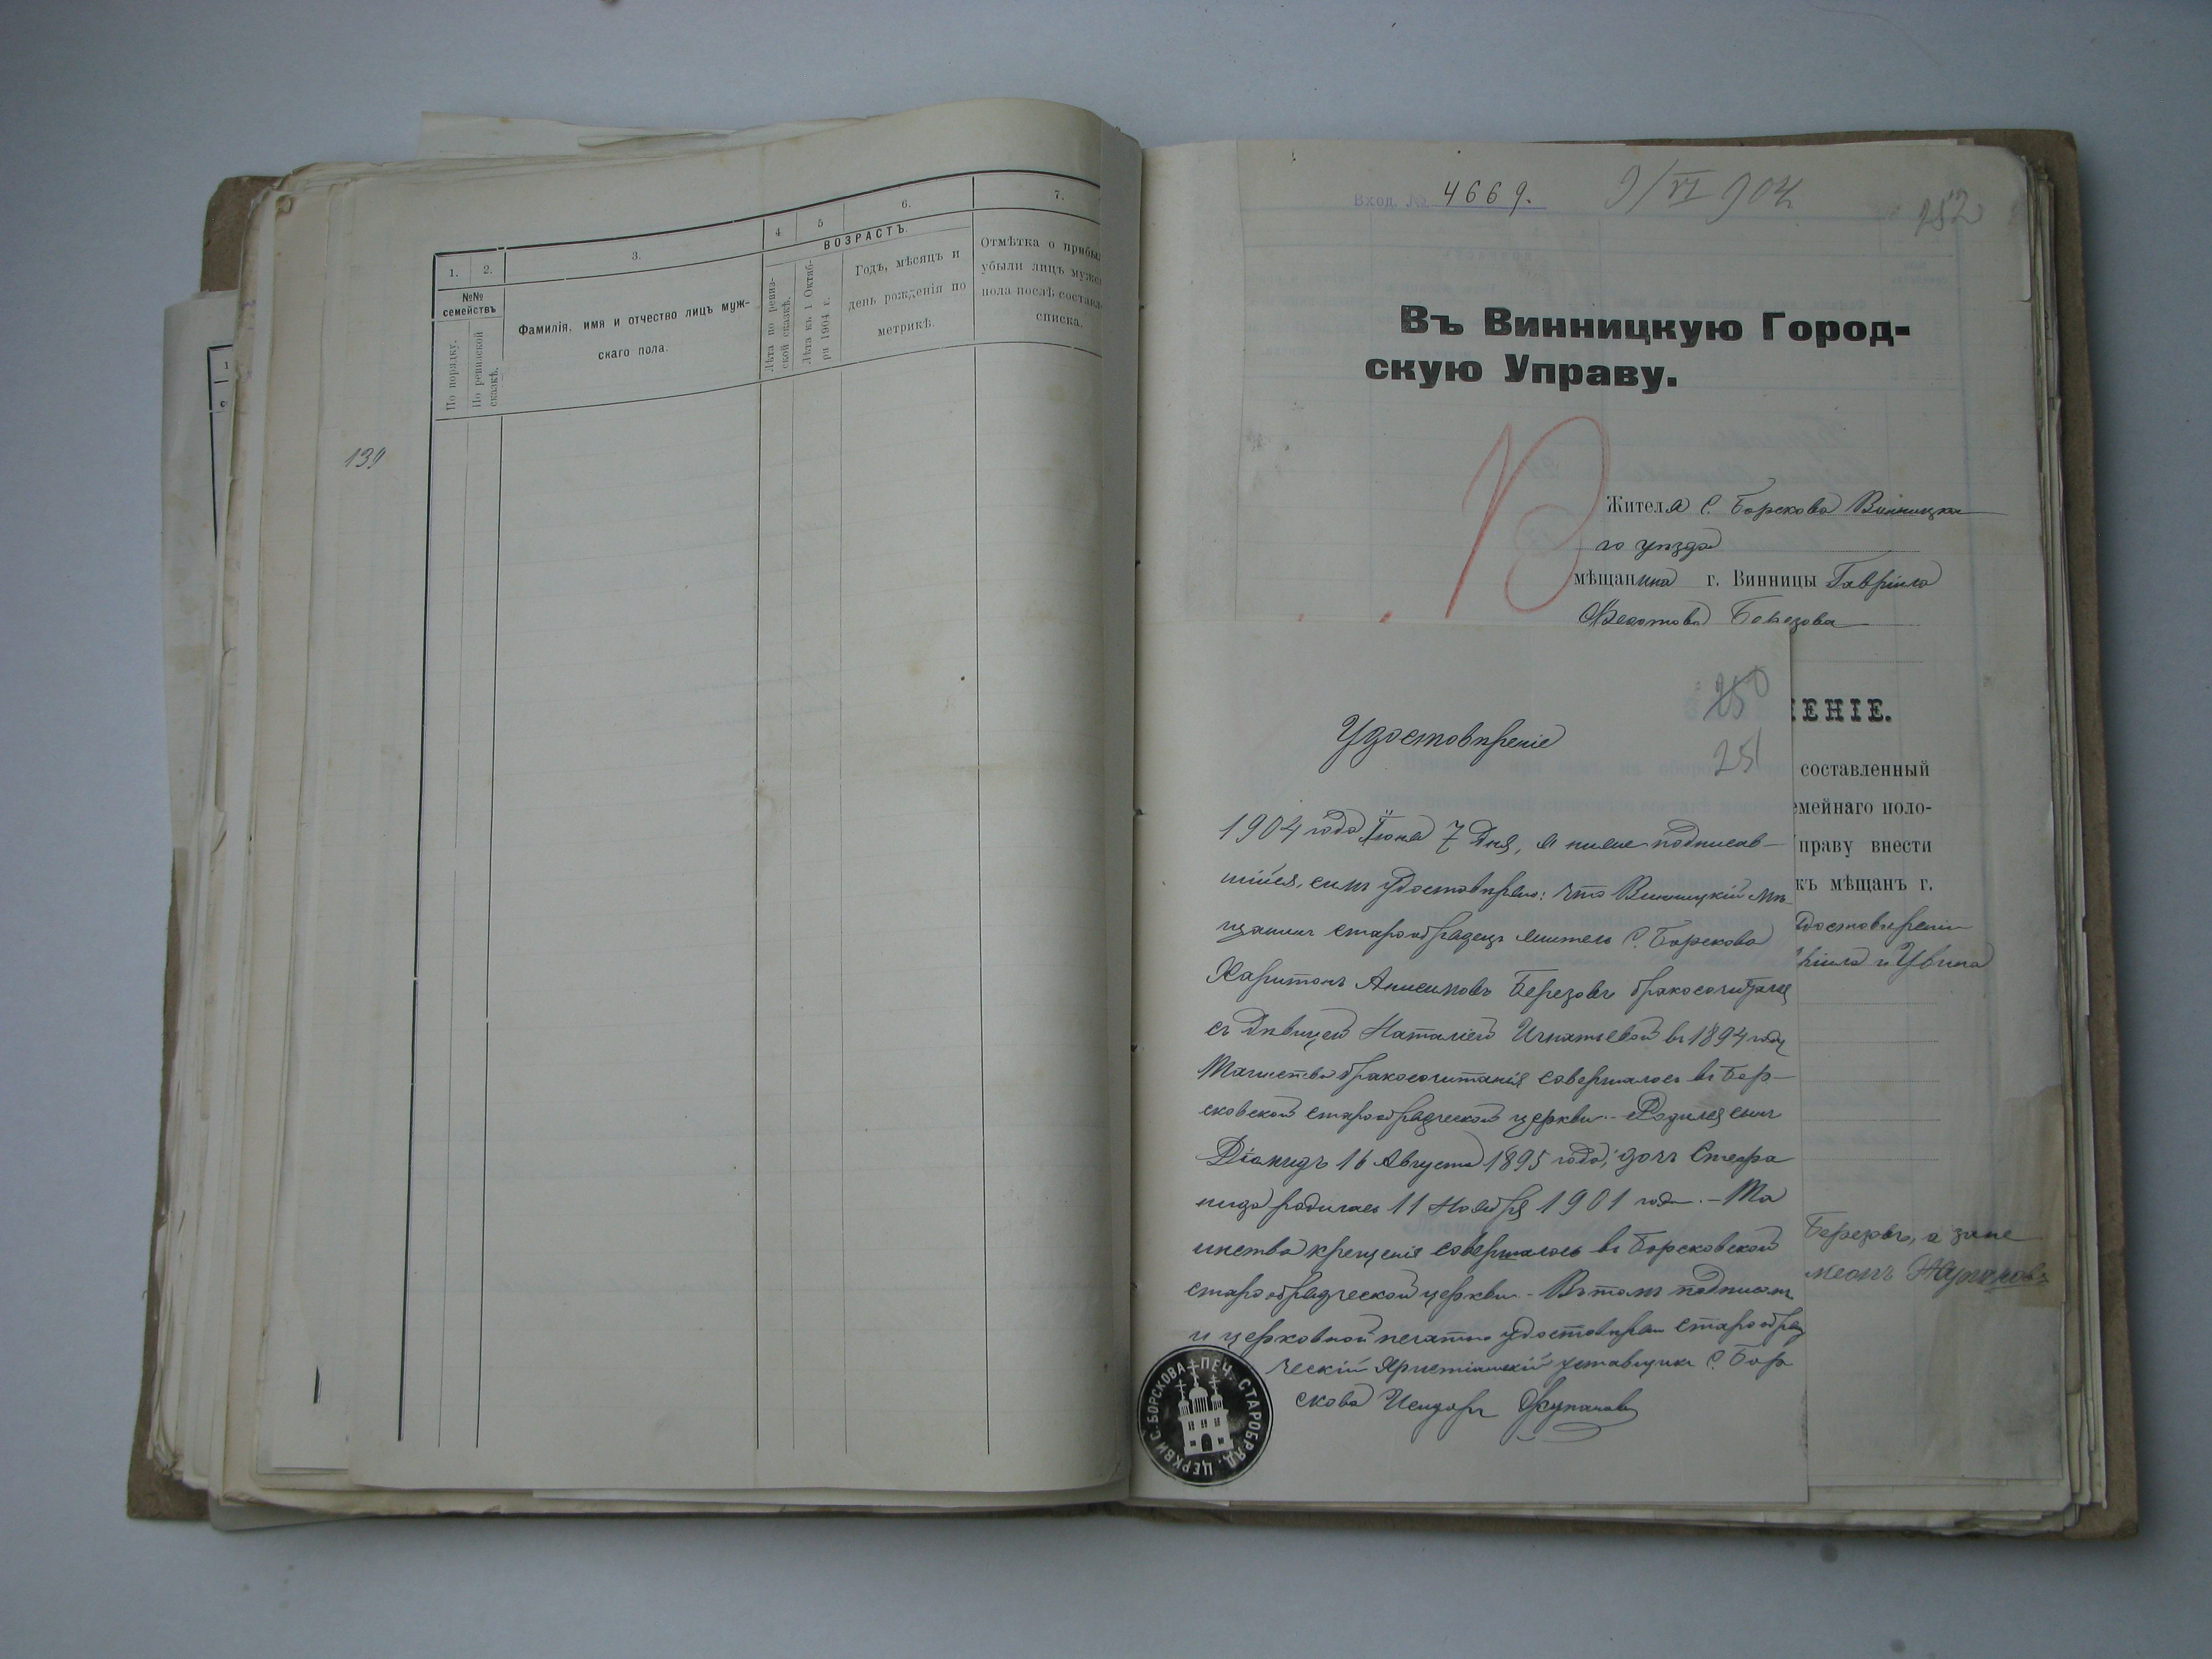 139
1. 2. 3. 4 5 6. 7.
№№ семействъ
По порядку.
По ревизской сказкѣ.
Фамилія, имя и отчество лицъ муж-
скаго пола.
ВОЗРАСТЪ.
Лѣта по ревиз-
ской сказкѣ.
Лѣта къ 1 Октяб-
ря 1904 г.
Годъ, мѣсяцъ и
день рожденія по
метрикѣ.
Отмѣтка о прибы
убыли лицъ мужс
пола послѣ составл
списка.
Вход. № 4669.
9/VI 904
252
Въ Винницкую Город-
скую Управу.
Жителя С. Борскова Винницка
го уѣзда
мѣщанина г. Винницы Гавріила
Березова
ЕНІЕ.
составленный
емейнаго поло-
праву внести
къ мѣщанъ г.
достовѣреніи
Березовъ, а
250
251
Удостовѣреніе
1904 года Іюня 7 Дня, я ниже подписав-
шійся, симъ удостовѣряю: что Винницкій мѣ-
щанинъ старообрядецъ житель С. Борскова
Харитонъ Анисимовъ Березовъ бракосочитался
съ Дѣвицей Наталіей Игнатьевой въ 1894 году
Таинство бракосочитанія совершалось въ Бор-
сковской старообрядческой церкви. - Родился сынъ
Діамидъ 16 Августа 1895 года, дочь Стефа
нида родилась 11 Ноября 1901 года. - Та
инство крещенія совершалось въ Борсковской
старообрядческой церкви - Въ томъ подписомъ
и церковной печатью удостовѣряю старообряд
ческій Христіанскій уставщикъ С. Бор
скова Исидоръ
ПЕЧ. СТАРОБРЯД. ЦЕРКВИ С. БОРСКОВА